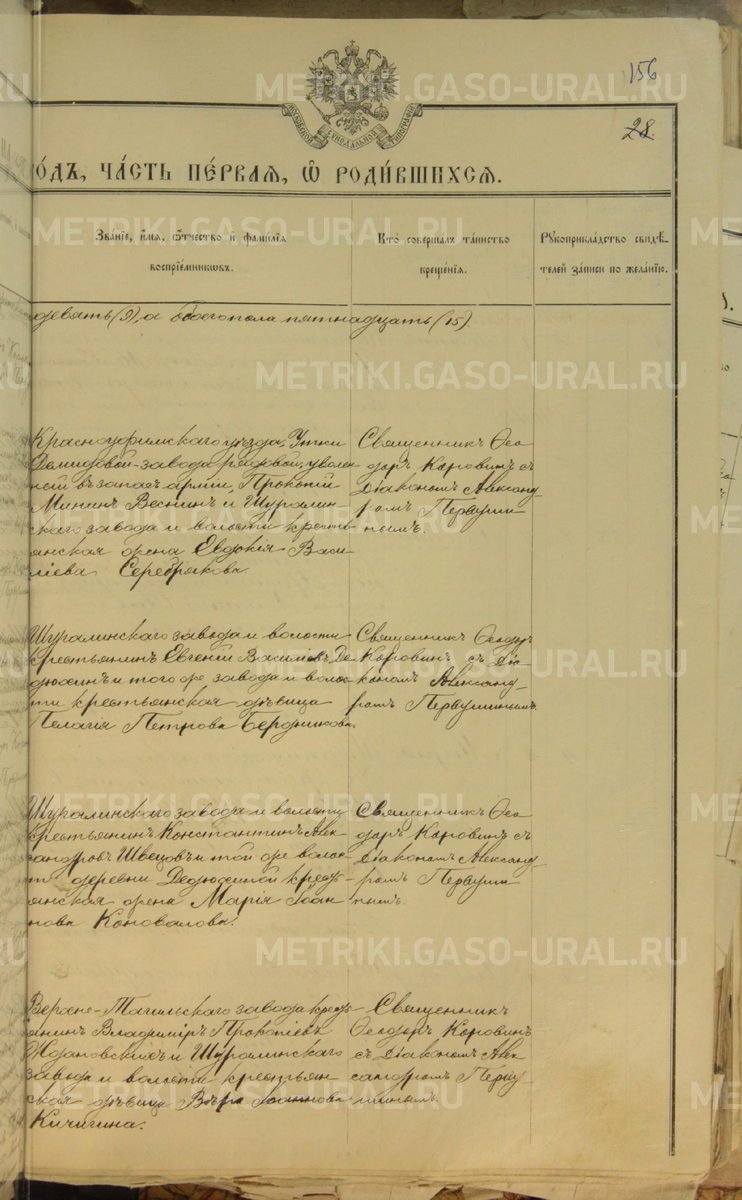 156
28
МОСКОВСКОЙ СѴНОДАЛЬНОЙ ТИПОГРАФІИ
О́ДЪ, ЧА́СТЬ ПЕ́РВАЯ, Ѡ҆ РОДИ́ВШИХСЯ.
Зва́нїе, и҆́мя, ѻ҆́тчество и҆ фами́лїя
воспрїе́мникѡвъ.
Кто̀ соверша́лъ та́инство
креще́нїя.
Рꙋкоприкла́дство свидѣ́-
телей за́писи по жела́нїю.
девять (9), а обоего пола пятнадцать (15).
Красноуфимскаго уѣзда, Утки
Демидовой завода рядовой, уволен
ной въ запасъ арміи, Прокопій
Мининъ Веснинъ и Шуралин-
скаго завода и волости кресть
янская жена Евдокія Васи
ліева Серебрякова.
Священникъ Ѳео
доръ Коровинъ съ
Діакономъ Александ
ромъ Первуши
нымъ.
Шуралинскаго завода и волости
крестьянинъ Евгеній Васильевъ Де
дюхинъ и того же завода и волос
ти крестьянская дѣвица
Пелагія Петрова Бердникова.
Священникъ Ѳеодоръ
Коровинъ съ Діа
кономъ Александ
ромъ Первушинымъ.
Шуралинскаго завода и волости
крестьянинъ Константинъ Алек
сандровъ Швецовъ и той же волос
ти деревни Дедюхиной кресть
янская жена Марія Іоан
нова Коновалова.
Священникъ Ѳео
доръ Коровинъ съ
Діакономъ Александ
ромъ Первуши
нымъ.
Верхне-Тагильскаго завода кресть
янинъ Владиміръ Прокопіевъ
Ждановскихъ и Шуралинскаго
завода и волости крестьян
ская дѣвица Вѣра Іоаннова
Кичигина.
Священникъ
Ѳеодоръ Коровинъ
съ Діакономъ Алек
сандромъ Перву
шинымъ.
METRIKI.GASO-URAL.RU